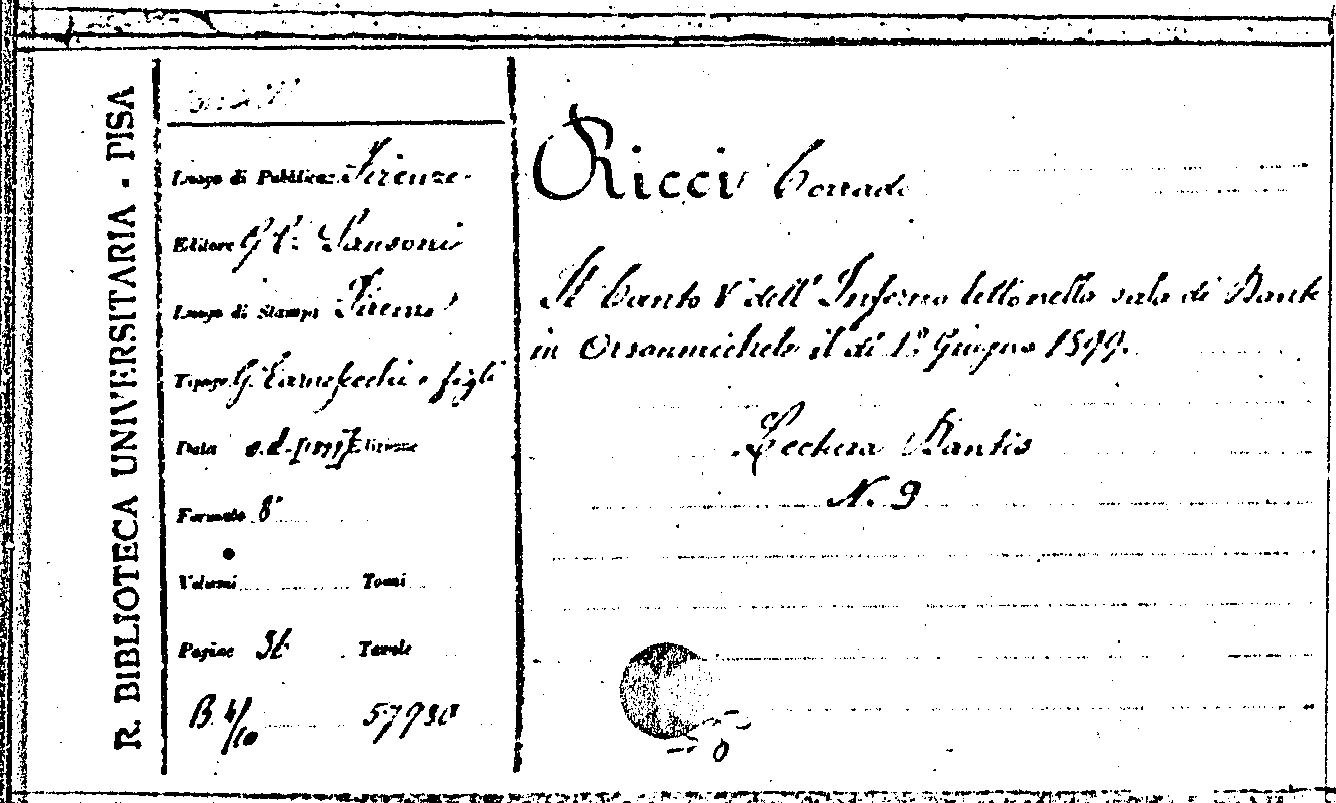 R. BIBLIOTECA UNIVERSITARIA - PISA
Luogo di Pubblicaz. Firenze
Editore G. C. Sansoni
Luogo di Stampa Firenze
Tipogr. G. Carnesecchi e figli
Data s.d. Edizione
Formato 8°
Volumi Tomi
Pagine Tavole
B. 4/10 57930
Ricci Corrado
Il Canto V dell' Inferno letto nella sala di Dante
in Orsanmichele il dì 1° Giugno 1899.
Lectura Dantis
N. 9